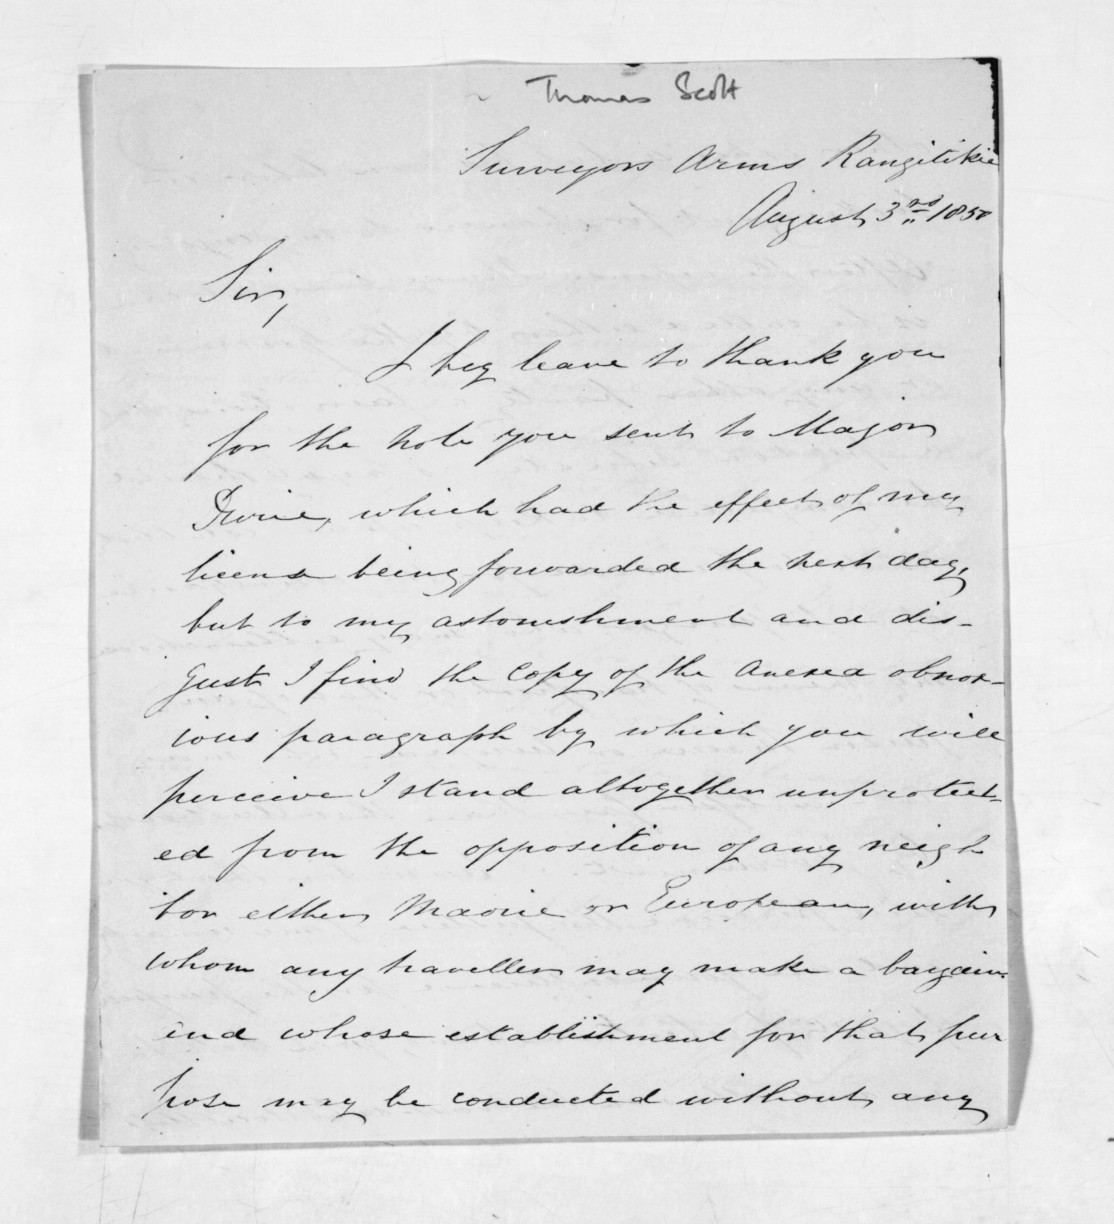 Thomas Scott
Surveyors Arms Rangitikie
August 3rd 1850
Sir,
I beg leave to thank you
for the note you sent to Major
which had the effect of my
license being forwarded the next day,
but to my astonishment and dis-
gust I find the copy of the anexed obnox-
ious paragraph by which you will
perceive I stand altogether unprotect-
ed from the opposition of any neigh
bor either Maorie or European, with
whom any traveller may make a bargain
and whose establishment for that pur
pose may be conducted without any